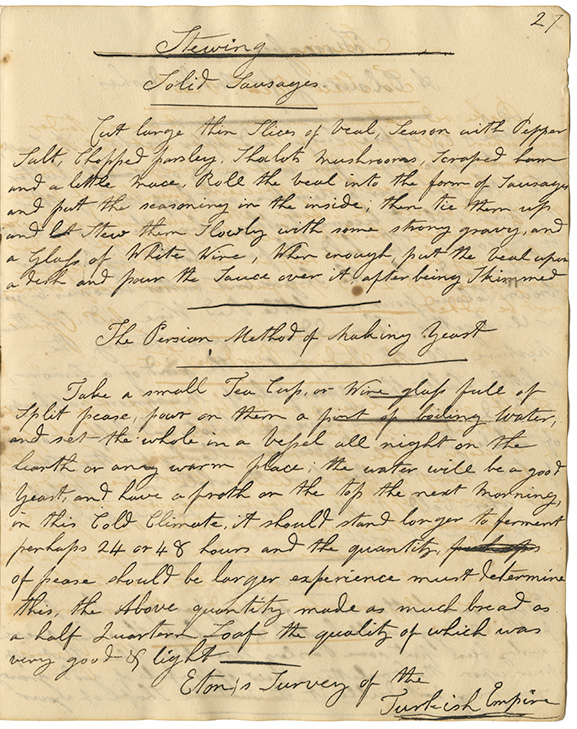 27
Stewing
Solid Sausages.
Cut large thin Slices of Veal, Season with Pepper
Salt, Chopped parsley, Shalots Mushrooms, Scraped ham
and a little Mace, Roll the veal into the form of Sausages
and put the seasoning in the inside; then tie them up
and Stew them Slowly with some strong gravy, and
a Glass of White Wine, When enough, put the Veal upon
a dish and pour the Sauce over it after being Skimmed
The Persian Method of Making Yeast
Take a small Tea Cup, or Wine glass full of
Split pease, pour on them a pint of boiling Water,
and set the whole in a Vessel all night on the
hearth or any warm place; the water will be a good
Yeast, and have a froth on the top the next Morning,
in this Cold Climate, it should stand longer to ferment
perhaps 24 or 48 hours and the quantity,
of pease should be larger experience must determine
this, the Above quantity made as much bread as
a half Quartern Loaf the quality of which was
very good & light
Eton's Survey of the
Turkish Empire